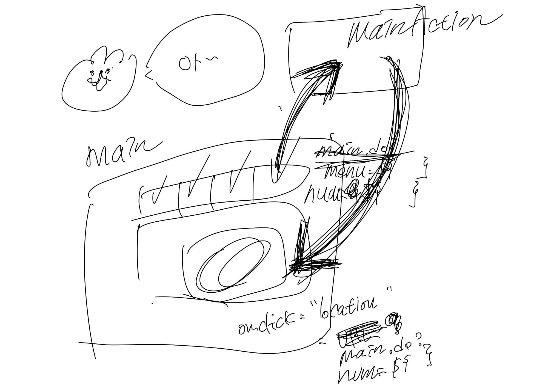 MainAction
아~
main
main.do
menu=
num=
onclick="location"
main.do?
num=${
}